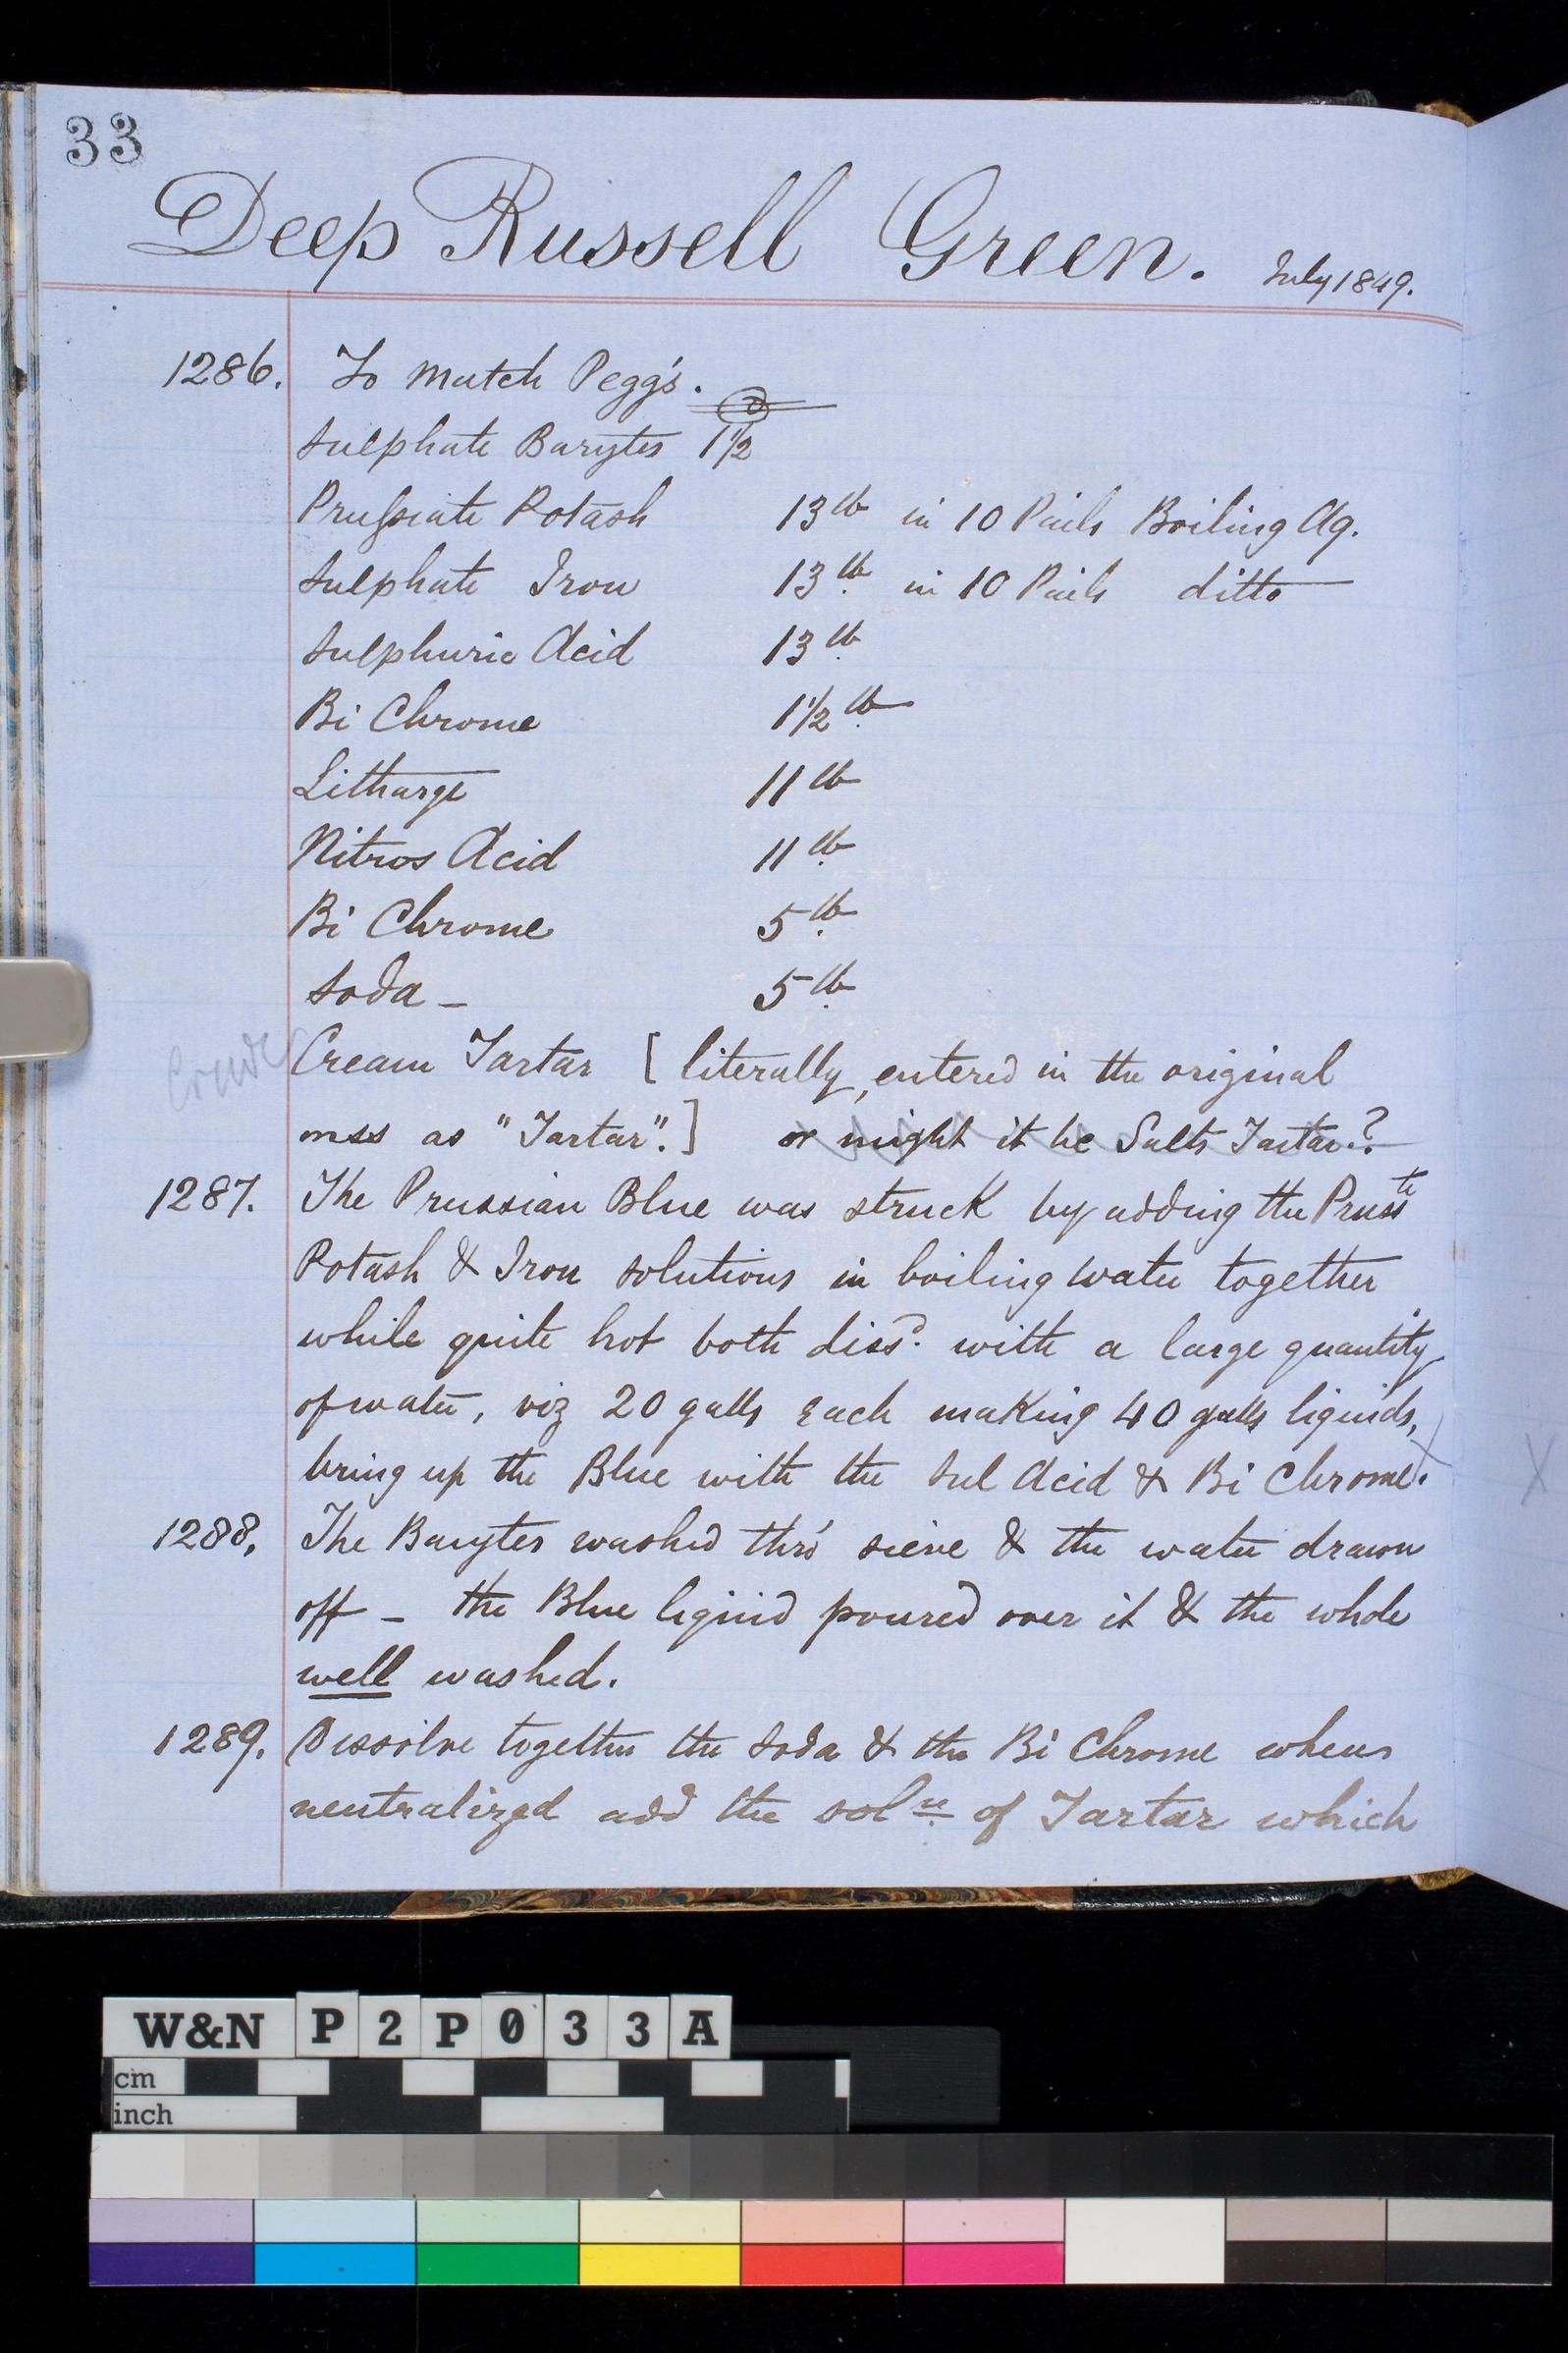 33
Deep Russell Green. July 1849.
1286. To match Pegg's.
Sulphate Barytes 1 1/2
Prussiate Potash 13 lb in 10 Pails Boiling Aq.
Sulphate Iron 13 lb in 10 Pails ditto
Sulphuric Acid 13 lb
Bi Chrome 1 1/2 lb
Litharge 11 lb
Nitros Acid 11 lb
Bi Chrome 5 lb
Soda - 5 lb
Crude Cream Tartar [literally, entered in the original
mss as "Tartar".] or might it be Salts Tartar.?
1287. The Prussian Blue was struck by adding the Pruss te
Potash & Iron solutions in boiling water together
while quite hot both diss d. with a large quantity
of water, viz 20 galls each making 40 galls liquids,
bring up the Blue with the Sul Acid & Bi Chrome. X
1288, The Barytes washed thro' sieve & the water drawn
off - the Blue liquid poured over it & the whole
well washed.
1289. Dissolve together the Soda & the Bi Chrome when
neutralized add the sol n. of Tartar which
X
W&N P2P033A
cm
inch